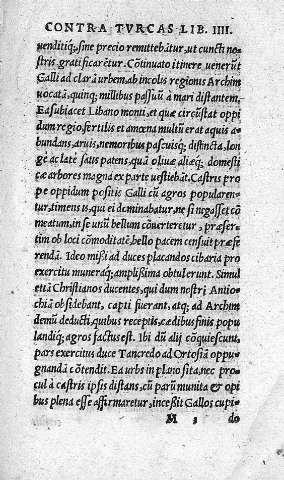 CONTRA TVRCAS LIB. IIII.
uenditiq́;sine precio remittebãtur, ut cuncti no
stris gratificarẽtur. Cõtinuato itinere uenerũt
Galli ad clarã urbem ab incolis regionis Archim
uocatã, quinq; millibus passuũ à mari distantem.
Ea subiacet Libano monti, et quæ circũstat oppi
dum regio, fertilis et amœna multũ erat aquis a
bundans, aruis, nemoribus pascuisq; distincta, lon
gè ac latè satis patens, quã oliuæ aliæq; domesti
cæ arbores magna ex parte uestiebãt. Castris pro
pe oppidum positis Galli cũ agros popularen
tur, timens is, qui ei dominabatur, ne si negasset cõ
meatum, in se unũ bellum cõuerteretur, præser-
tim ob loci cõmoditatẽ, bello pacem censuit præfe
rendã. Ideo misit ad duces placandos cibaria pro
exercitu muneraq́; amplissima obtulerunt. Simul
et tã Christianos ducentes, qui dum nostri Antio-
chiã obsidebant, capti fuerant, atq; ad Archim
demũ deducti, quibus receptis, cædibus finis popu
landiq; agros factus est. Ibi dũ alij cõquiescunt,
pars exercitus duce Tancredo ad Ortosiã oppu-
gnandã cõtendit. Ea urbs in plano sita, nec pro
cul à castris ipsis distans, cũ parũ munita & opi
bus plena esse affirmaretur, incessit Gallos cupi-
M 3 do